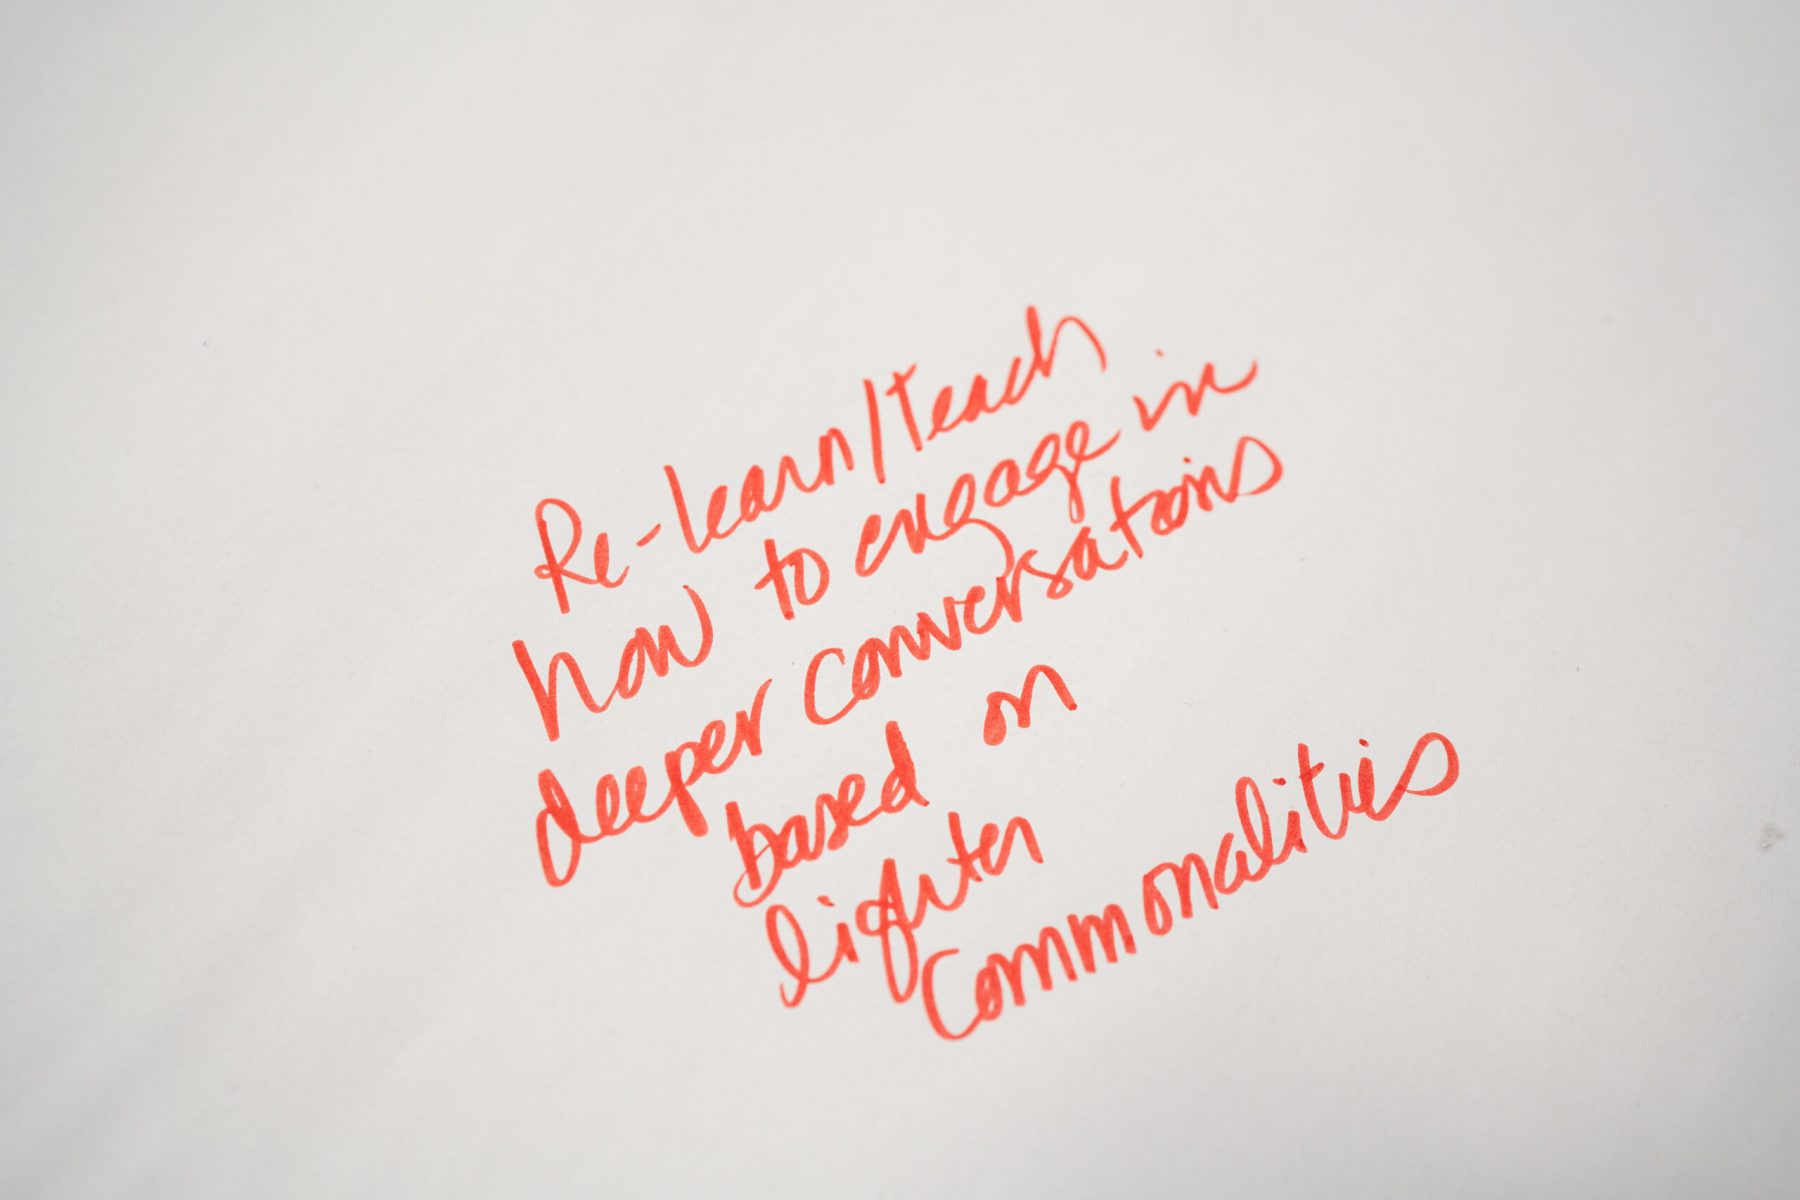 Re-learn/teach
how to engage in
deeper conversations
based on
lighter
Commonalities